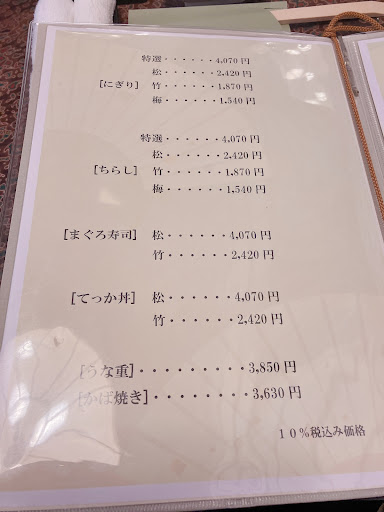 特選・・・・・・4,070円
松・・・・・・2,420円
[にぎり] 竹・・・・・・1,870円
梅・・・・・・1,540円
特選・・・・・・4,070円
松・・・・・・2,420円
[ちらし] 竹・・・・・・1,870円
梅・・・・・・1,540円
[まぐろ寿司] 松・・・・・・4,070円
竹・・・・・・2,420円
[てっか丼] 松・・・・・・4,070円
竹・・・・・・2,420円
[うな重]・・・・・・・・・3,850円
[かば焼き]・・・・・・・・3,630円
10%税込み価格